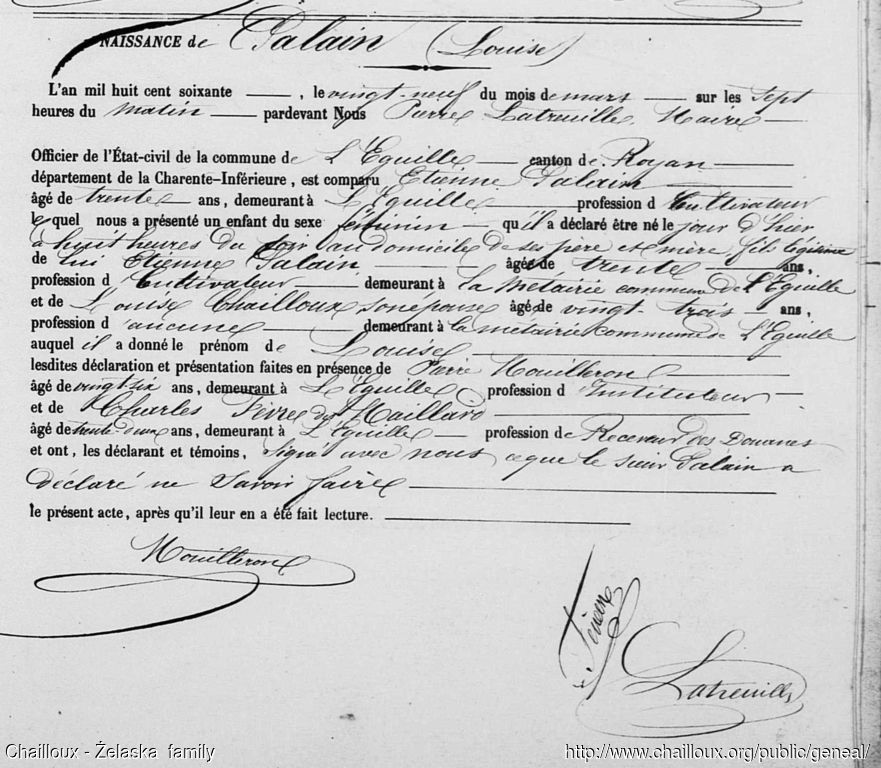 NAISSANCE de Salain (Louise)
L'an mil huit cent soixante , le vingt-neuf du mois de mars sur les sept
heures du matin pardevant Nous Pierre Latreuille, Maire
Officier de l'État-civil de la commune de L'Eguille canton de Royan
département de la Charente-Inférieure, est comparu Etienne Salain
âgé de trente ans, demeurant à L'Eguille profession d Cultivateur
le quel nous a présenté un enfant du sexe féminin qu'il a déclaré être né le jour d'hier
à huit heures du soir au domicile de ses père et mère, fils légitime
de lui Etienne Salain âgé de trente ans,
profession d Cultivateur demeurant à la Métairie commune de L'Eguille
et de Louise Chailloux son épouse âgée de vingt-trois ans,
profession d'aucune demeurant à la métairie commune de L'Eguille
auquel il a donné le prénom de Louise
lesdites déclaration et présentation faites en présence de Pierre Mouilleron
âgé de vingt six ans, demeurant à L'Eguille profession d'Instituteur
et de Charles Maillard
âgé de trente-deux ans, demeurant à L'Eguille profession de Receveur des Douanes
et ont, les déclarant et témoins, signé avec nous ce que le sieur Salain a
déclaré ne savoir faire
le présent acte, après qu'il leur en a été fait lecture.
Mouilleron
Latreuille
Chailloux - Żelaska family
http://www.chailloux.org/public/geneal/